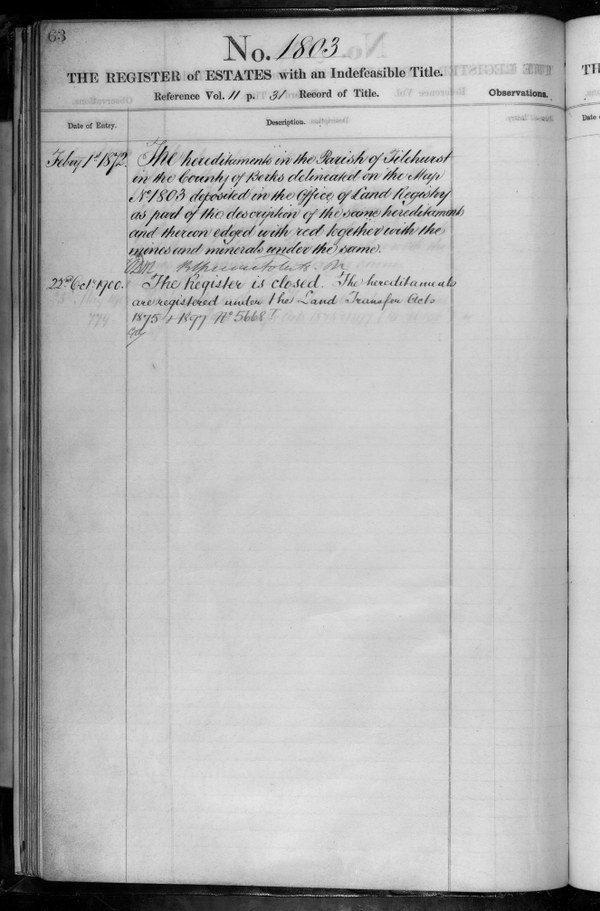 63
No. 1803
THE REGISTER of ESTATES with an Indefeasible Title.
Reference Vol. 11 p. 31 Record of Title.
Observations.
Date of Entry.
Description.
Febry 1st 1872.
The hereditaments in the Parish of Tilehurst
in the County of Berks delineated on the Map
No 1803 deposited in the Office of Land Registry
as part of the description of the same hereditaments
and thereon edged with red together with the
mines and minerals under the same.
22nd Octr 1900.
The Register is closed. The hereditaments
are registered under the Land Transfer Acts
1875 & 1897 No 5668
TH
Date